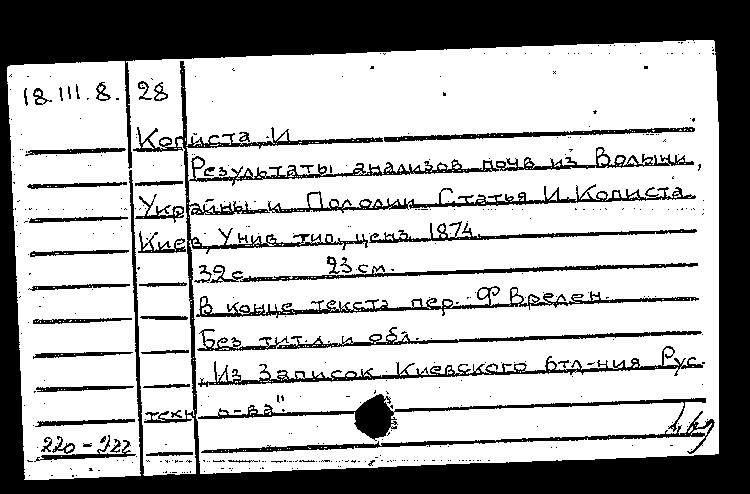 18.III.8. 28
Кописта, И
Результаты анализов почв из Волыни,
Украйны и Подолии Статья И. Кописта
Киев, Унив тип., ценз 1874.
39 с. 23 см.
В конце текста пер. Ф Вреден.
Без тит. л. и обл.
„Из Записок Киевского отд-ния Рус.
техн о-ва".
220-922